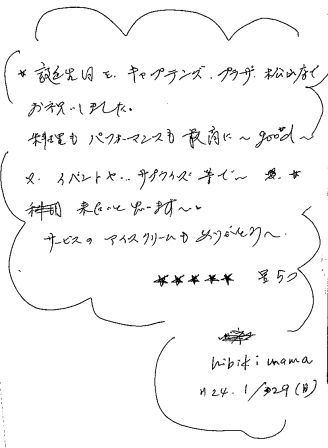 ★ 誕生日を、キャプテンズ、プラザ、松山店で
お祝いしました。
料理もパフォーマンスも最高に〜good〜
又、イベントや…サプライズ等で〜
来たいと思います〜。
サービスのアイスクリームもありがとう〜
★★★★★ 星5つ
hibiki mama
H24.1/29(日)